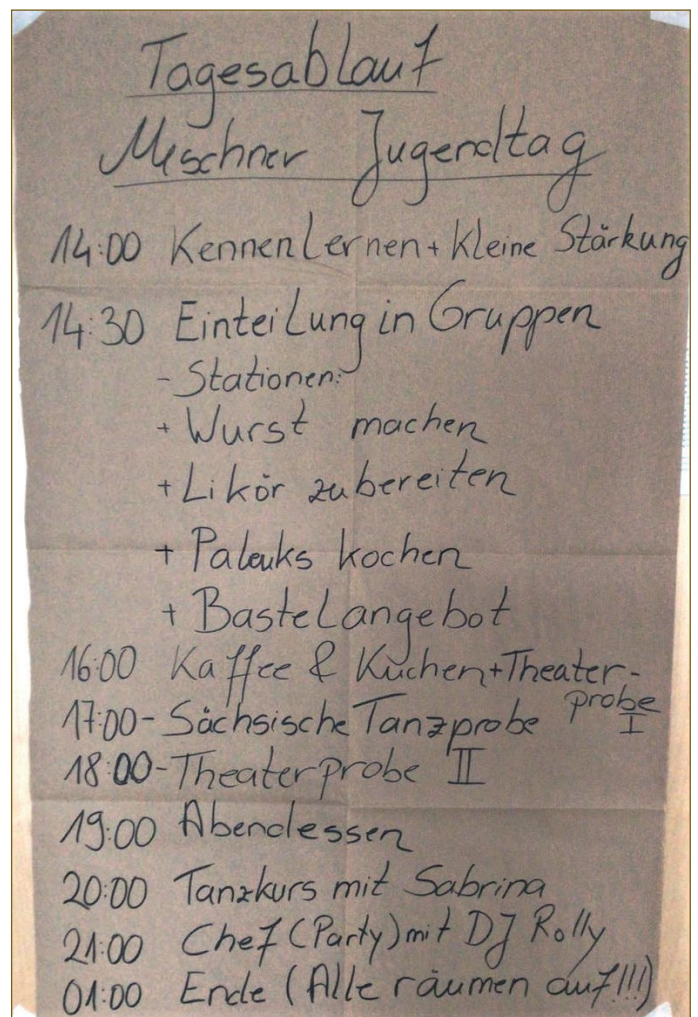 Tagesablauf
Meschner Jugendtag
14:00 Kennenlernen + kleine Stärkung
14:30 Einteilung in Gruppen
- Stationen:
+ Wurst machen
+ Likör zubereiten
+ Palauks kochen
+ Bastelangebot
16:00 Kaffee & Kuchen + Theater-
probe I
17:00 - Sächsische Tanzprobe
18:00 - Theaterprobe II
19:00 Abendessen
20:00 Tanzkurs mit Sabrina
21:00 Chef (Party) mit DJ Rolly
01:00 Ende (Alle räumen auf!!!)